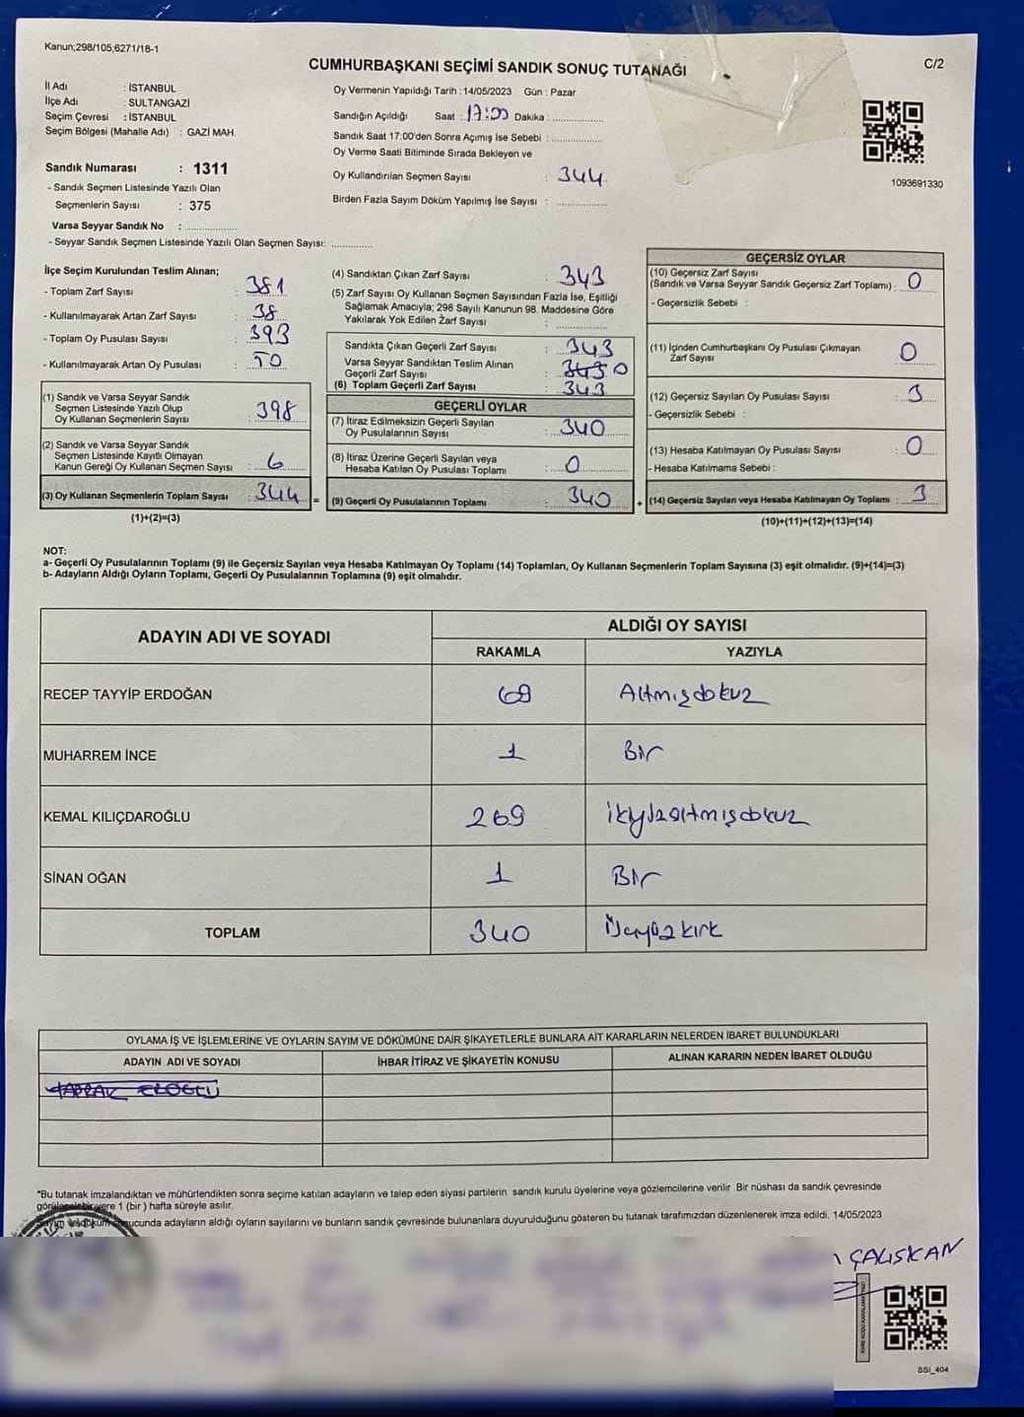 Kanun;298/105,6271/18-1
CUMHURBAŞKANI SEÇİMİ SANDIK SONUÇ TUTANAĞI
C/2
İl Adı : İSTANBUL
İlçe Adı : SULTANGAZİ
Seçim Çevresi : İSTANBUL
Seçim Bölgesi (Mahalle Adı) : GAZİ MAH.
Sandık Numarası : 1311
- Sandık Seçmen Listesinde Yazılı Olan
Seçmenlerin Sayısı : 375
Varsa Seyyar Sandık No :
- Seyyar Sandık Seçmen Listesinde Yazılı Olan Seçmen Sayısı:
Oy Vermenin Yapıldığı Tarih : 14/05/2023 Gün : Pazar
Sandığın Açıldığı Saat : 17:00 Dakika :
Sandık Saat 17:00'den Sonra Açımış İse Sebebi :
Oy Verme Saati Bitiminde Sırada Bekleyen ve
Oy Kullandırılan Seçmen Sayısı : 344
Birden Fazla Sayım Döküm Yapılmış İse Sayısı :
1093691330
İlçe Seçim Kurulundan Teslim Alınan;
- Toplam Zarf Sayısı : 381
- Kullanılmayarak Artan Zarf Sayısı : 38
- Toplam Oy Pusulası Sayısı : 393
- Kullanılmayarak Artan Oy Pusulası : 50
(1) Sandık ve Varsa Seyyar Sandık
Seçmen Listesinde Yazılı Olup
Oy Kullanan Seçmenlerin Sayısı : 398
(2) Sandık ve Varsa Seyyar Sandık
Seçmen Listesinde Kayıtlı Olmayan
Kanun Gereği Oy Kullanan Seçmen Sayısı : 6
(3) Oy Kullanan Seçmenlerin Toplam Sayısı : 344 =
(1)+(2)=(3)
(4) Sandıktan Çıkan Zarf Sayısı : 343
(5) Zarf Sayısı Oy Kullanan Seçmen Sayısından Fazla İse, Eşitliği
Sağlamak Amacıyla; 298 Sayılı Kanunun 98. Maddesine Göre
Yakılarak Yok Edilen Zarf Sayısı :
Sandıkta Çıkan Geçerli Zarf Sayısı : 343
Varsa Seyyar Sandıktan Teslim Alınan
Geçerli Zarf Sayısı : 0
(6) Toplam Geçerli Zarf Sayısı : 343
GEÇERLİ OYLAR
(7) İtiraz Edilmeksizin Geçerli Sayılan
Oy Pusulalarının Sayısı : 340
(8) İtiraz Üzerine Geçerli Sayılan veya
Hesaba Katılan Oy Pusulası Toplamı : 0
(9) Geçerli Oy Pusulalarının Toplamı : 340 +
GEÇERSİZ OYLAR
(10) Geçersiz Zarf Sayısı
(Sandık ve Varsa Seyyar Sandık Geçersiz Zarf Toplamı) : 0
- Geçersizlik Sebebi :
(11) İçinden Cumhurbaşkanı Oy Pusulası Çıkmayan
Zarf Sayısı : 0
(12) Geçersiz Sayılan Oy Pusulası Sayısı : 3
- Geçersizlik Sebebi :
(13) Hesaba Katılmayan Oy Pusulası Sayısı : 0
- Hesaba Katılmama Sebebi :
(14) Geçersiz Sayılan veya Hesaba Katılmayan Oy Toplamı : 3
(10)+(11)+(12)+(13)=(14)
NOT:
a- Geçerli Oy Pusulalarının Toplamı (9) ile Geçersiz Sayılan veya Hesaba Katılmayan Oy Toplamı (14) Toplamları, Oy Kullanan Seçmenlerin Toplam Sayısına (3) eşit olmalıdır. (9)+(14)=(3)
b- Adayların Aldığı Oyların Toplamı, Geçerli Oy Pusulalarının Toplamına (9) eşit olmalıdır.
ADAYIN ADI VE SOYADI
ALDIĞI OY SAYISI
RAKAMLA YAZIYLA
RECEP TAYYİP ERDOĞAN 69 Altmışdokuz
MUHARREM İNCE 1 Bir
KEMAL KILIÇDAROĞLU 269 ikiyüzaltmışdokuz
SİNAN OĞAN 1 Bir
TOPLAM 340 Üçyüzkırk
OYLAMA İŞ VE İŞLEMLERİNE VE OYLARIN SAYIM VE DÖKÜMÜNE DAİR ŞİKAYETLERLE BUNLARA AİT KARARLARIN NELERDEN İBARET BULUNDUKLARI
ADAYIN ADI VE SOYADI İHBAR İTİRAZ VE ŞİKAYETİN KONUSU ALINAN KARARIN NEDEN İBARET OLDUĞU
"Bu tutanak imzalandıktan ve mühürlendikten sonra seçime katılan adayların ve talep eden siyasi partilerin sandık kurulu üyelerine veya gözlemcilerine verilir. Bir nüshası da sandık çevresinde
görülecebilir yere 1 (bir) hafta süreyle asılır.
Sayım ve döküm sonucunda adayların aldığı oyların sayılarını ve bunların sandık çevresinde bulunanlara duyurulduğunu gösteren bu tutanak tarafımızdan düzenlenerek imza edildi. 14/05/2023
ÇALIŞKAN
SSI_404